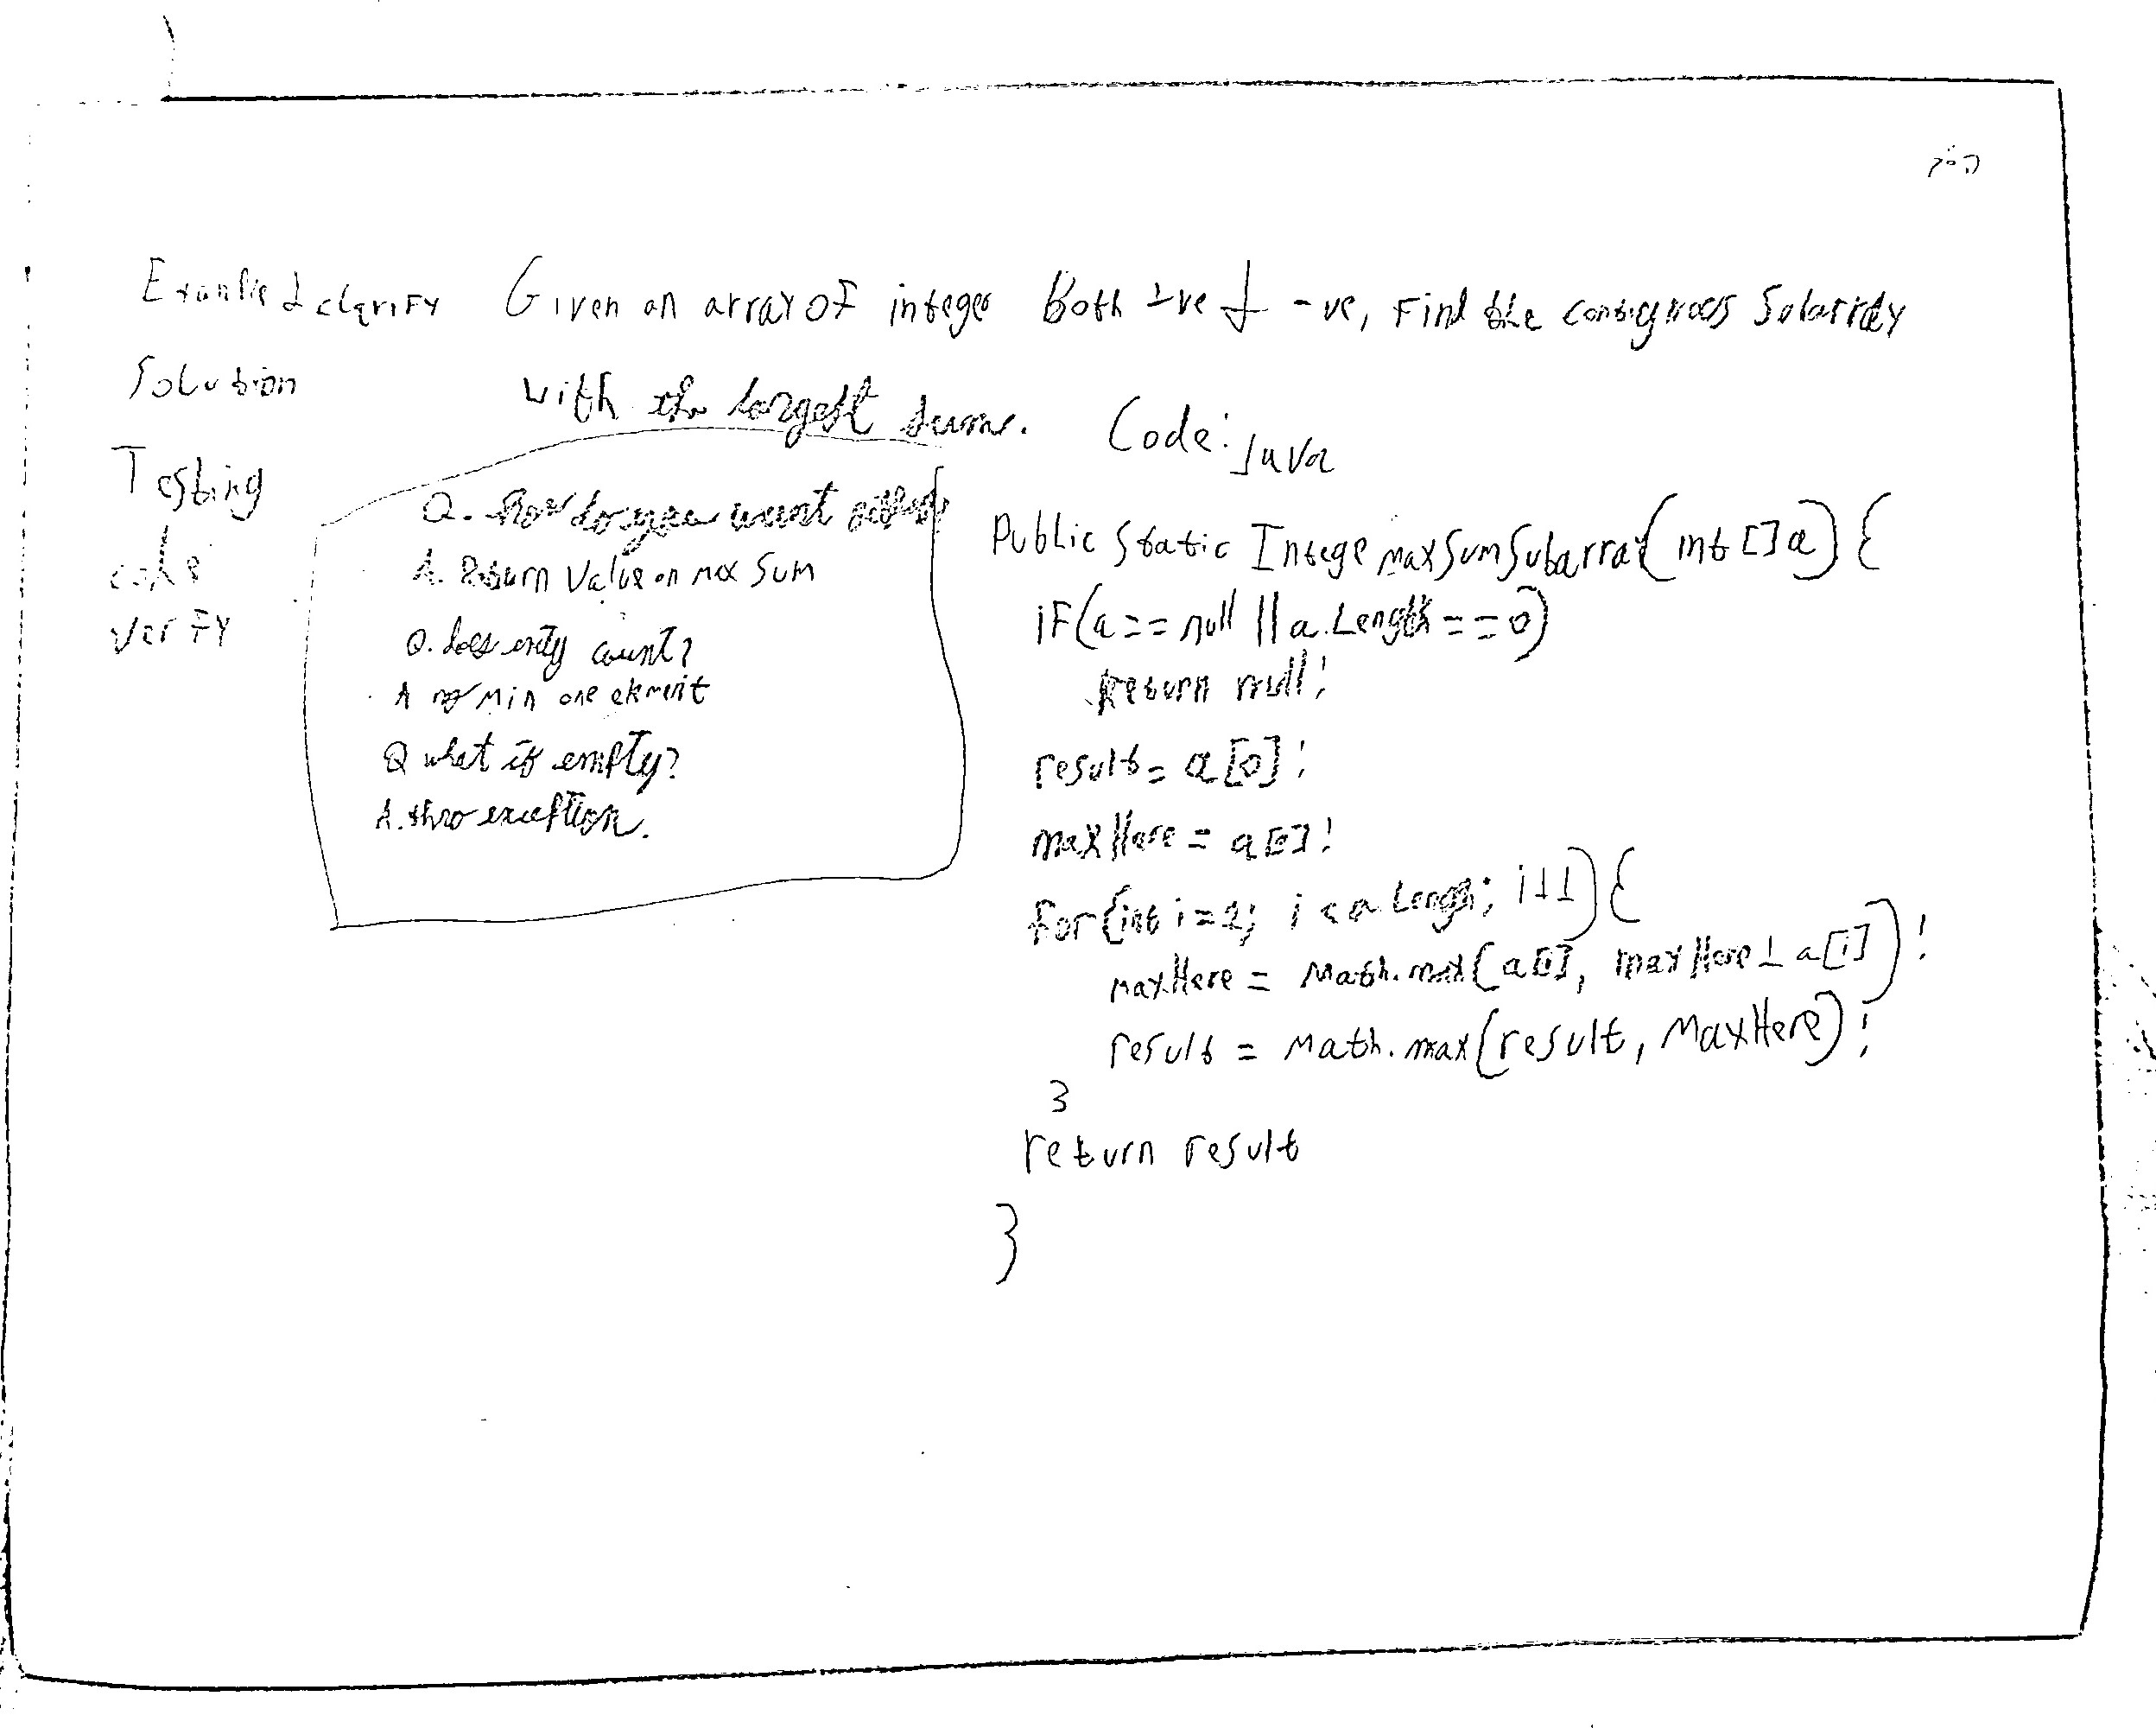 Example & clarify
Solution
Testing
code
verify
Given an array of integer Both +ve & -ve, Find the contiguous Subarray
with the largest sum.
Q. how do you want
A. Return Value on max Sum
Q. does empty count?
A min one element
Q what if empty?
A. thro exception.
Code: Java
Public Static Intege maxSumSubarray(int []a) {
if(a == null || a.Length == 0)
Return null;
result = a[0];
maxHere = a[0];
for(int i=1; i < a.Lengh; i++) {
maxHere = Math.max(a[i], maxHere + a[i]);
result = Math.max(result, MaxHere);
}
return result
}